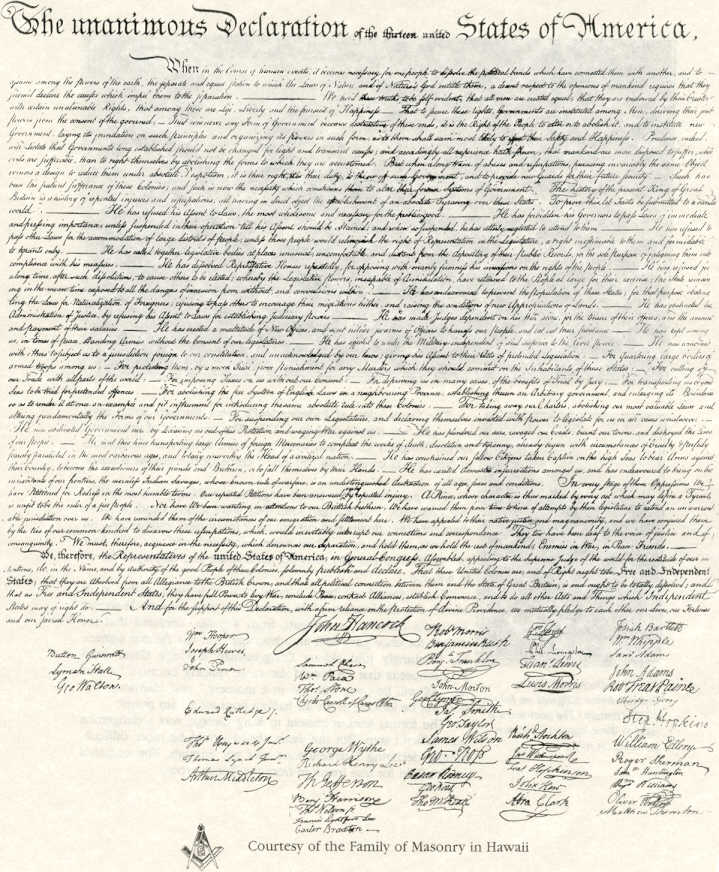 The unanimous Declaration of the thirteen united States of America,
When in the Course of human events, it becomes necessary for one people to dissolve the political bands which have connected them with another, and to
assume among the powers of the earth, the separate and equal station to which the Laws of Nature and of Nature's God entitle them, a decent respect to the opinions of mankind requires that they
should declare the causes which impel them to the separation. — We hold these truths to be self-evident, that all men are created equal, that they are endowed by their Creator
with certain unalienable Rights, that among these are Life, Liberty and the pursuit of Happiness. — That to secure these rights, Governments are instituted among Men, deriving their just
powers from the consent of the governed, — That whenever any Form of Government becomes destructive of these ends, it is the Right of the People to alter or to abolish it, and to institute new
Government, laying its foundation on such principles and organizing its powers in such form, as to them shall seem most likely to effect their Safety and Happiness. Prudence, indeed,
will dictate that Governments long established should not be changed for light and transient causes; and accordingly all experience hath shewn, that mankind are more disposed to suffer, while
evils are sufferable, than to right themselves by abolishing the forms to which they are accustomed. But when a long train of abuses and usurpations, pursuing invariably the same Object
evinces a design to reduce them under absolute Despotism, it is their right, it is their duty, to throw off such Government, and to provide new Guards for their future security. — Such has
been the patient sufferance of these Colonies; and such is now the necessity which constrains them to alter their former Systems of Government. The history of the present King of Great
Britain is a history of repeated injuries and usurpations, all having in direct object the establishment of an absolute Tyranny over these States. To prove this, let Facts be submitted to a candid
world. — He has refused his Assent to Laws, the most wholesome and necessary for the public good. — He has forbidden his Governors to pass Laws of immediate
and pressing importance, unless suspended in their operation till his Assent should be obtained; and when so suspended, he has utterly neglected to attend to them. — He has refused to
pass other Laws for the accommodation of large districts of people, unless those people would relinquish the right of Representation in the Legislature, a right inestimable to them and formidable
to tyrants only. — He has called together legislative bodies at places unusual, uncomfortable, and distant from the depository of their public Records, for the sole purpose of fatiguing them into
compliance with his measures. — He has dissolved Representative Houses repeatedly, for opposing with manly firmness his invasions on the rights of the people. — He has refused for
a long time, after such dissolutions, to cause others to be elected; whereby the Legislative powers, incapable of Annihilation, have returned to the People at large for their exercise; the State remain
ing in the mean time exposed to all the dangers of invasion from without, and convulsions within. — He has endeavoured to prevent the population of these States; for that purpose obstruc
ting the Laws for Naturalization of Foreigners; refusing to pass others to encourage their migrations hither, and raising the conditions of new Appropriations of Lands. — He has obstructed the
Administration of Justice, by refusing his Assent to Laws for establishing Judiciary powers. — He has made Judges dependent on his Will alone, for the tenure of their offices, and the amount
and payment of their salaries. — He has erected a multitude of New Offices, and sent hither swarms of Officers to harrass our people, and eat out their substance. — He has kept among
us, in times of peace, Standing Armies without the Consent of our legislatures. — He has affected to render the Military independent of and superior to the Civil power. — He has combined
with others to subject us to a jurisdiction foreign to our constitution, and unacknowledged by our laws; giving his Assent to their Acts of pretended Legislation: — For Quartering large bodies of
armed troops among us: — For protecting them, by a mock Trial, from punishment for any Murders which they should commit on the Inhabitants of these States: — For cutting off
our Trade with all parts of the world: — For imposing Taxes on us without our Consent: — For depriving us in many cases, of the benefits of Trial by Jury: — For transporting us beyond
Seas to be tried for pretended offences — For abolishing the free System of English Laws in a neighbouring Province, establishing therein an Arbitrary government, and enlarging its Boundaries
so as to render it at once an example and fit instrument for introducing the same absolute rule into these Colonies: — For taking away our Charters, abolishing our most valuable Laws, and
altering fundamentally the Forms of our Governments: — For suspending our own Legislatures, and declaring themselves invested with power to legislate for us in all cases whatsoever. —
He has abdicated Government here, by declaring us out of his Protection and waging War against us. — He has plundered our seas, ravaged our Coasts, burnt our towns, and destroyed the lives
of our people. — He is at this time transporting large Armies of foreign Mercenaries to compleat the works of death, desolation and tyranny, already begun with circumstances of Cruelty & perfidy
scarcely paralleled in the most barbarous ages, and totally unworthy the Head of a civilized nation. — He has constrained our fellow Citizens taken Captive on the high Seas to bear Arms against
their Country, to become the executioners of their friends and Brethren, or to fall themselves by their Hands. — He has excited domestic insurrections amongst us, and has endeavoured to bring on the
inhabitants of our frontiers, the merciless Indian Savages, whose known rule of warfare, is an undistinguished destruction of all ages, sexes and conditions. In every stage of these Oppressions We
have Petitioned for Redress in the most humble terms: Our repeated Petitions have been answered only by repeated injury. A Prince, whose character is thus marked by every act which may define a Tyrant,
is unfit to be the ruler of a free people. Nor have We been wanting in attentions to our Brittish brethren. We have warned them from time to time of attempts by their legislature to extend an unwarrant
able jurisdiction over us. We have reminded them of the circumstances of our emigration and settlement here. We have appealed to their native justice and magnanimity, and we have conjured them
by the ties of our common kindred to disavow these usurpations, which, would inevitably interrupt our connections and correspondence. They too have been deaf to the voice of justice and of
consanguinity. We must, therefore, acquiesce in the necessity, which denounces our Separation, and hold them, as we hold the rest of mankind, Enemies in War, in Peace Friends. —
We, therefore, the Representatives of the united States of America, in General Congress, Assembled, appealing to the Supreme Judge of the world for the rectitude of our in
tentions, do, in the Name, and by Authority of the good People of these Colonies, solemnly publish and declare, That these United Colonies are, and of Right ought to be Free and Independent
States; that they are Absolved from all Allegiance to the British Crown, and that all political connection between them and the State of Great Britain, is and ought to be totally dissolved; and
that as Free and Independent States, they have full Power to levy War, conclude Peace, contract Alliances, establish Commerce, and to do all other Acts and Things which Independent
States may of right do. — And for the support of this Declaration, with a firm reliance on the protection of divine Providence, we mutually pledge to each other our Lives, our Fortunes
and our sacred Honor.
Button Gwinnett
Lyman Hall
Geo Walton.
Wm Hooper
Joseph Hewes,
John Penn
Edward Rutledge /.
Thos Heyward Junr.
Thomas Lynch Junr.
Arthur Middleton
John Hancock
Samuel Chase
Wm Paca
Thos Stone
Charles Carroll of Carrollton
George Wythe
Richard Henry Lee
Th Jefferson
Benj Harrison
Thos Nelson jr.
Francis Lightfoot Lee
Carter Braxton
Robt Morris
Benjamin Rush
Benj. Franklin
John Morton
Geo Clymer
Jas. Smith
Geo. Taylor
James Wilson
Geo. Ross
Caesar Rodney
Geo Read
Tho M:Kean
Wm Floyd
Phil. Livingston
Frans. Lewis
Lewis Morris
Richd. Stockton
Jno Witherspoon
Fras. Hopkinson
John Hart
Abra Clark
Josiah Bartlett
Wm Whipple
Saml Adams
John Adams
Robt Treat Paine
Elbridge Gerry
Step. Hopkins
William Ellery
Roger Sherman
Saml Huntington
Wm Williams
Oliver Wolcott
Matthew Thornton
Courtesy of the Family of Masonry in Hawaii